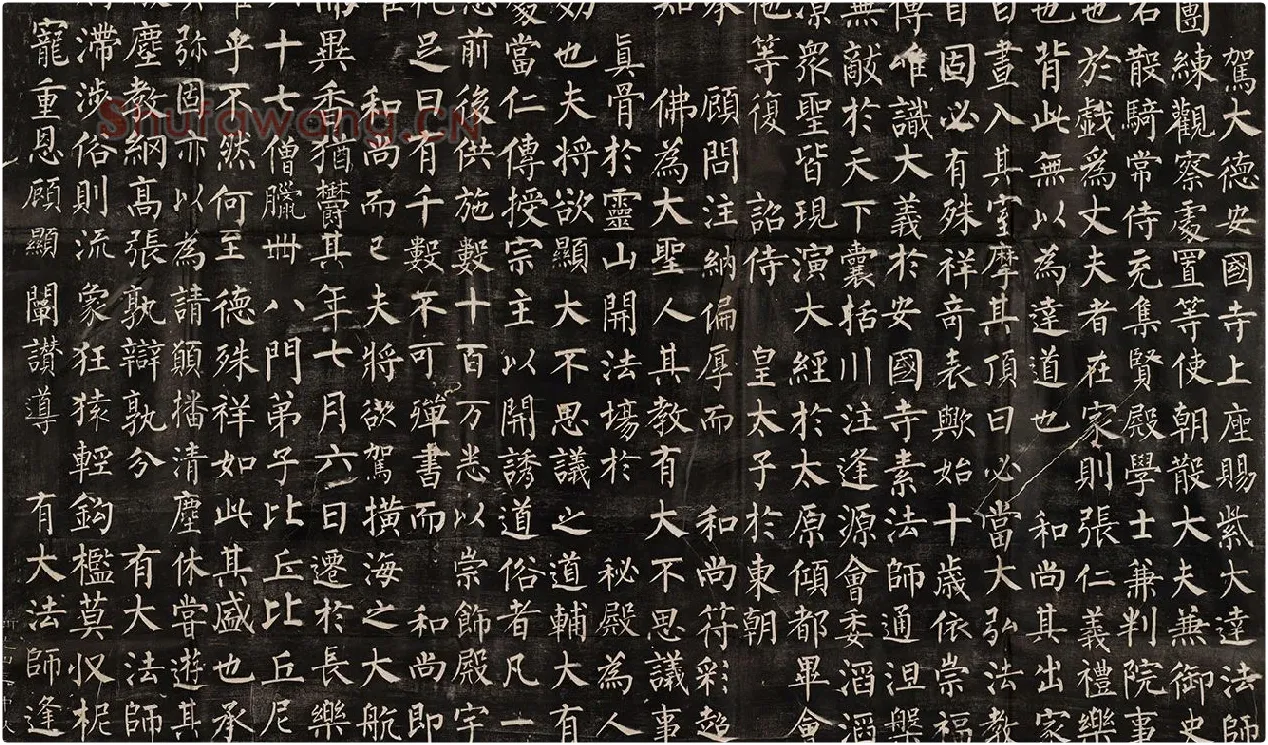 駕大德安國寺上座賜紫大達法師
團練觀察處置等使朝散大夫兼御史
右散騎常侍充集賢殿學士兼判院事
也於戲為丈夫者在家則張仁義禮樂
也背此無以為達道也 和尚其出家
日晝入其室摩其頂曰必當大弘法教
自固必有殊祥奇表歟始十歲依崇福
傳唯識大義於安國寺素法師通涅槃
無敵於天下囊括川注逢源會委滔滔
涼眾聖皆現演大經於太原傾都畢會
他等復 詔侍 皇太子於東朝
顧問注納偏厚而 和尚符彩超
知 佛為大聖人其教有大不思議事
真骨於靈山開法場於 秘殿為人
也夫將欲顯大不思議之道輔大有
當仁傳授宗主以開誘道俗者凡一
前後供施數十百万悉以崇飾殿宇
足曰有千數不可殫書而 和尚即
和尚而已夫將欲駕橫海之大航
而異香猶欝其年七月六日遷於長樂
十七僧臘卌八門弟子比丘比丘尼
乎不然何至德殊祥如此其盛也承
弥固亦以為請願播清塵休嘗遊其
塵教綱高張孰辯孰分 有大法師
滯涉俗則流象狂猿輕鈎檻莫收柅
寵重恩顧顯闡讚導 有大法師逢
Shufawang.CN